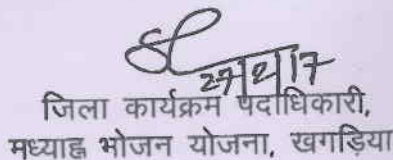 27/2/17
जिला कार्यक्रम पदाधिकारी,
मध्याह्न भोजन योजना, खगड़िया